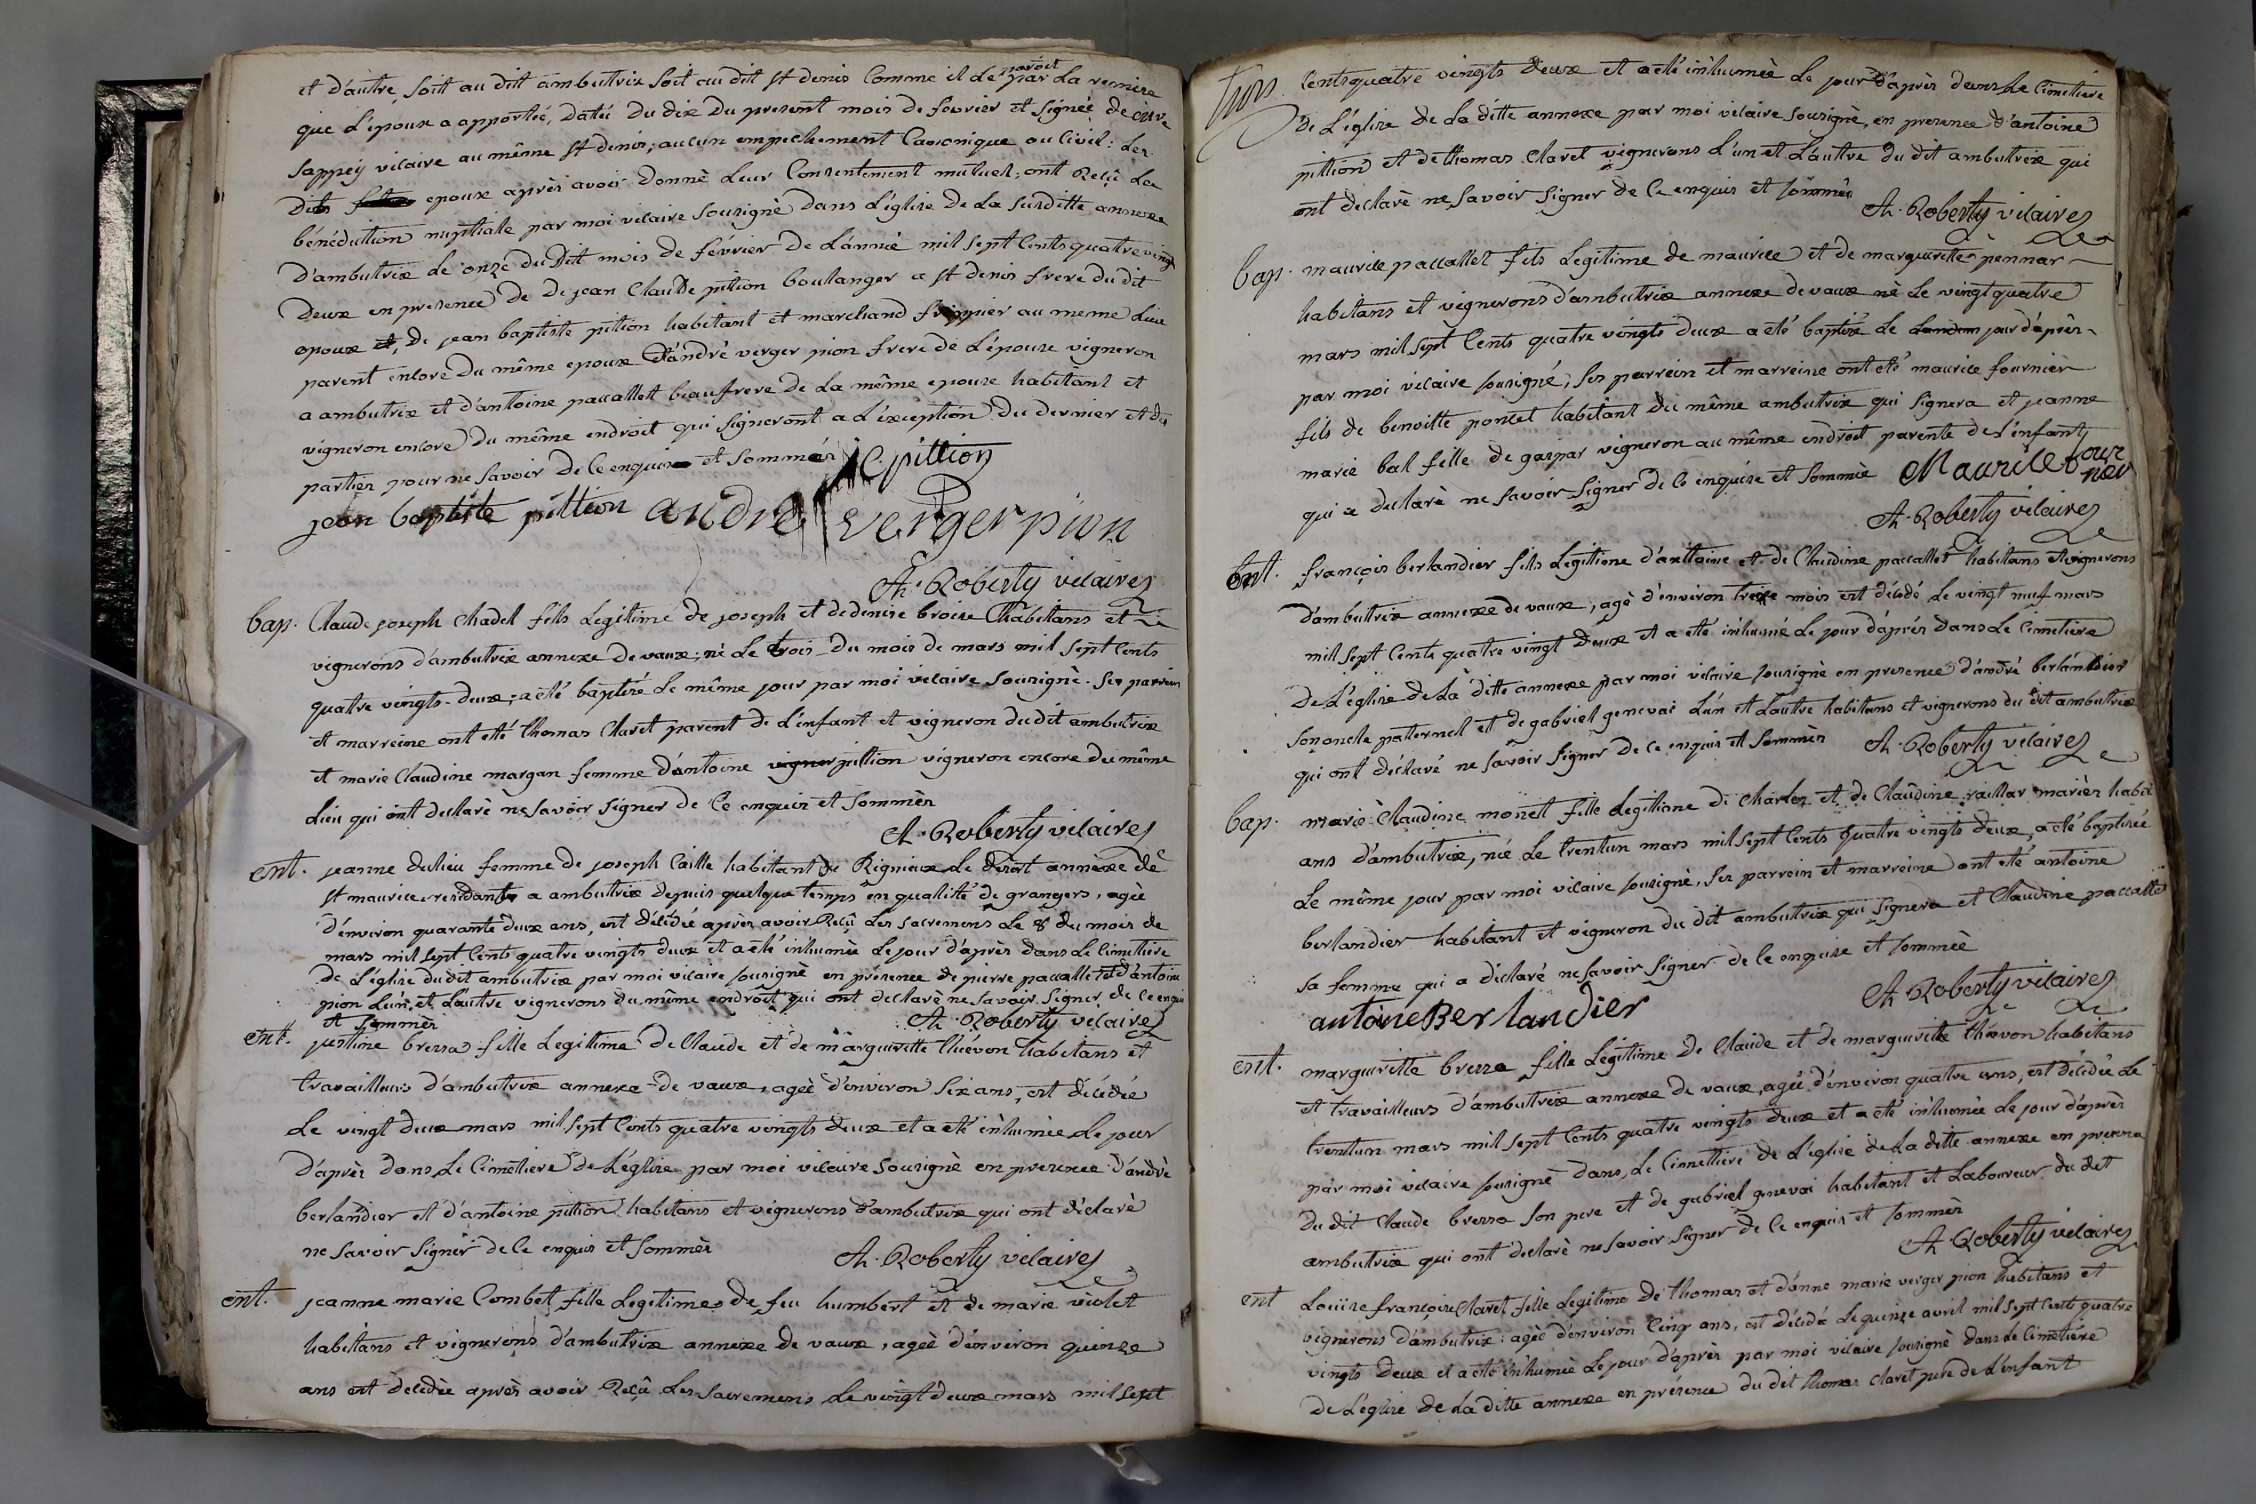 et d'autre, soit au dit ambutrix soit au dit st denis comme il de paroit par la remise
que l'epoux a apportée, datée du dix du present mois de fevrier et signée de
sappey vicaire au même st denis, aucun empechement canonique ou civil: les
dits epoux après avoir donné leur consentement mutuel, ont reçû la
bénédiction nuptiale par moi vicaire sousigné dans l'église de la susditte annexe
d'ambutrix le onze du dit mois de février de l'année mil sept cents quatre vingt
deux en presence de de jean claude pition boulanger a st denis frere du dit
epoux et, de jean baptiste pition habitant et marchand frippier au meme lieu
parent encore du même epoux d'andré verger pion frere de l'épouse vigneron
a ambutrix et d'antoine paccallet beaufrere de la même epouse habitant et
vigneron encore du même endroit qui signeront a l'éxception du dernier et des
parties pour ne savoir de ce enquis et sommés jc pittion
jean baptiste pittion andre verger pion
A. Roberty vicaire
bap. Claude joseph chadel fils legitime de joseph et de denise broise habitans et
vignerons d'ambutrix annexe de vaux, né le trois du mois de mars mil sept cents
quatre vingts-deux, a eté baptisé le même jour par moi vicaire sousigné. ses parrein
et marreine ont eté thomas claret parent de l'enfant et vigneron du dit ambutrix
et marie claudine margan femme d'antoine vigner pittion vigneron encore du même
lieu qui ont declaré ne savoir signer de ce enquis et sommés
A. Roberty vicaire
ent. jeanne dulieu femme de joseph caille habitant de Rigniaux le desert annexe de
st maurice, residante a ambutrix depuis quelque temps en quallitté de grangers, agée
d'environ quarante deux ans, est décédée après avoir Reçû les sacremens le 8 du mois de
mars mil sept cents quatre vingts deux et a eté inhumée le jour d'après dans le cimettiere
de l'église du dit ambutrix par moi vicaire sousigné en présence de pierre paccallet et d'antoine
pion l'un et l'autre vignerons du même endroit qui ont declaré ne savoir signer de ce enquis
et sommés A. Roberty vicaire
ent. justine bressa fille legittime de claude et de marguerette thévon habitans et
travailleurs d'ambutrix annexe de vaux, agée d'environ six ans, est décédée
le vingt deux mars mil sept cents quatre vingts deux et a eté inhumée le jour
d'après dans le cimetiere de l'église par moi vicaire sousigné en presence d'andré
berlandier et d'antoine pittion habitans et vignerons d'ambutrix qui ont déclaré
ne savoir signer de ce enquis et sommés A. Roberty vicaire
ent. jeanne marie combet fille legitime de feu humbert et de marie violet
habitans et vignerons d'ambutrix annexe de vaux, agée d'environ quinze
ans est decédée après avoir Reçû les sacremens le vingt deux mars mil sept
cents quatre vingts deux et a eté inhumée le jour d'après dans le cimetiere
de l'église de la ditte annexe par moi vicaire sousigné, en presence d'antoine
pittion et de thomas claret vignerons l'un et l'autre du dit ambutrix qui
ont declaré ne savoir signer de ce enquis et sommés
A. Roberty vicaire
bap. maurice paccallet fils legitime de maurice et de marguerette pennar
habitans et vignerons d'ambutrix annexe de vaux né le vingt quatre
mars mil sept cents quatre vingts deux a eté baptisé le jour d'après
par moi vicaire sousigné, ses parrein et marreine ont eté maurice fournier
fils de benoitte poncet habitant du même ambutrix qui signera et jeanne
marie bal fille de gaspar vigneron au même endroit parente de l'enfant
qui a declaré ne savoir signer de ce enquise et sommée Maurice four
nier
A. Roberty vicaire
ent. françois berlandier fils legittime d'antoine et de claudine paccallet habitans et vignerons
d'ambutrix annexe de vaux, agé d'environ treize mois est décédé le vingt neuf mars
mil sept cents quatre vingt deux et a eté inhumé le jour d'après dans le cimetiere
de l'église de la ditte annexe par moi vicaire sousigné en presence d'andré berlandier
son oncle paternel et de gabriel genevai l'un et l'autre habitans et vignerons du dit ambutrix
qui ont déclaré ne savoir signer de ce enquis et sommés A. Roberty vicaire
bap. marie claudine monet fille legittime de charles et de claudine vaillar mariés habit
ans d'ambutrix, née le trentun mars mil sept cents quatre vingts deux, a eté baptisée
le même jour par moi vicaire sousigné, ses parrein et marreine ont eté antoine
berlandier habitant et vigneron du dit ambutrix qui signera et claudine paccallet
sa femme qui a déclaré ne savoir signer de ce enquise et sommée
A. Roberty vicaire
antoine Berlandier
ent. marguerette bressa fille légitime de claude et de marguerette thévon habitans
et travailleurs d'ambutrix annexe de vaux, agée d'environ quatre ans, est décédée le
trentun mars mil sept cents quatre vingts deux et a eté inhumée le jour d'après
par moi vicaire sousigné dans le cimettiere de l'église de la ditte annexe en presence
du dit claude bressa son pere et de gabriel genevai habitant et laboureur du dit
ambutrix qui ont declaré ne savoir signer de ce enquis et sommés
A. Roberty vicaire
ent Loüise françoise claret fille legitime de thomas et d'anne marie verger pion habitans et
vignerons d'ambutrix: agée d'environ cinq ans, est décédé le quinze avril mil sept cents quatre
vingts deux et a eté inhumée le jour d'après par moi vicaire sousigné dans le cimetiére
de l'église de la ditte annexe en présence du dit thomas claret pere de l'enfant